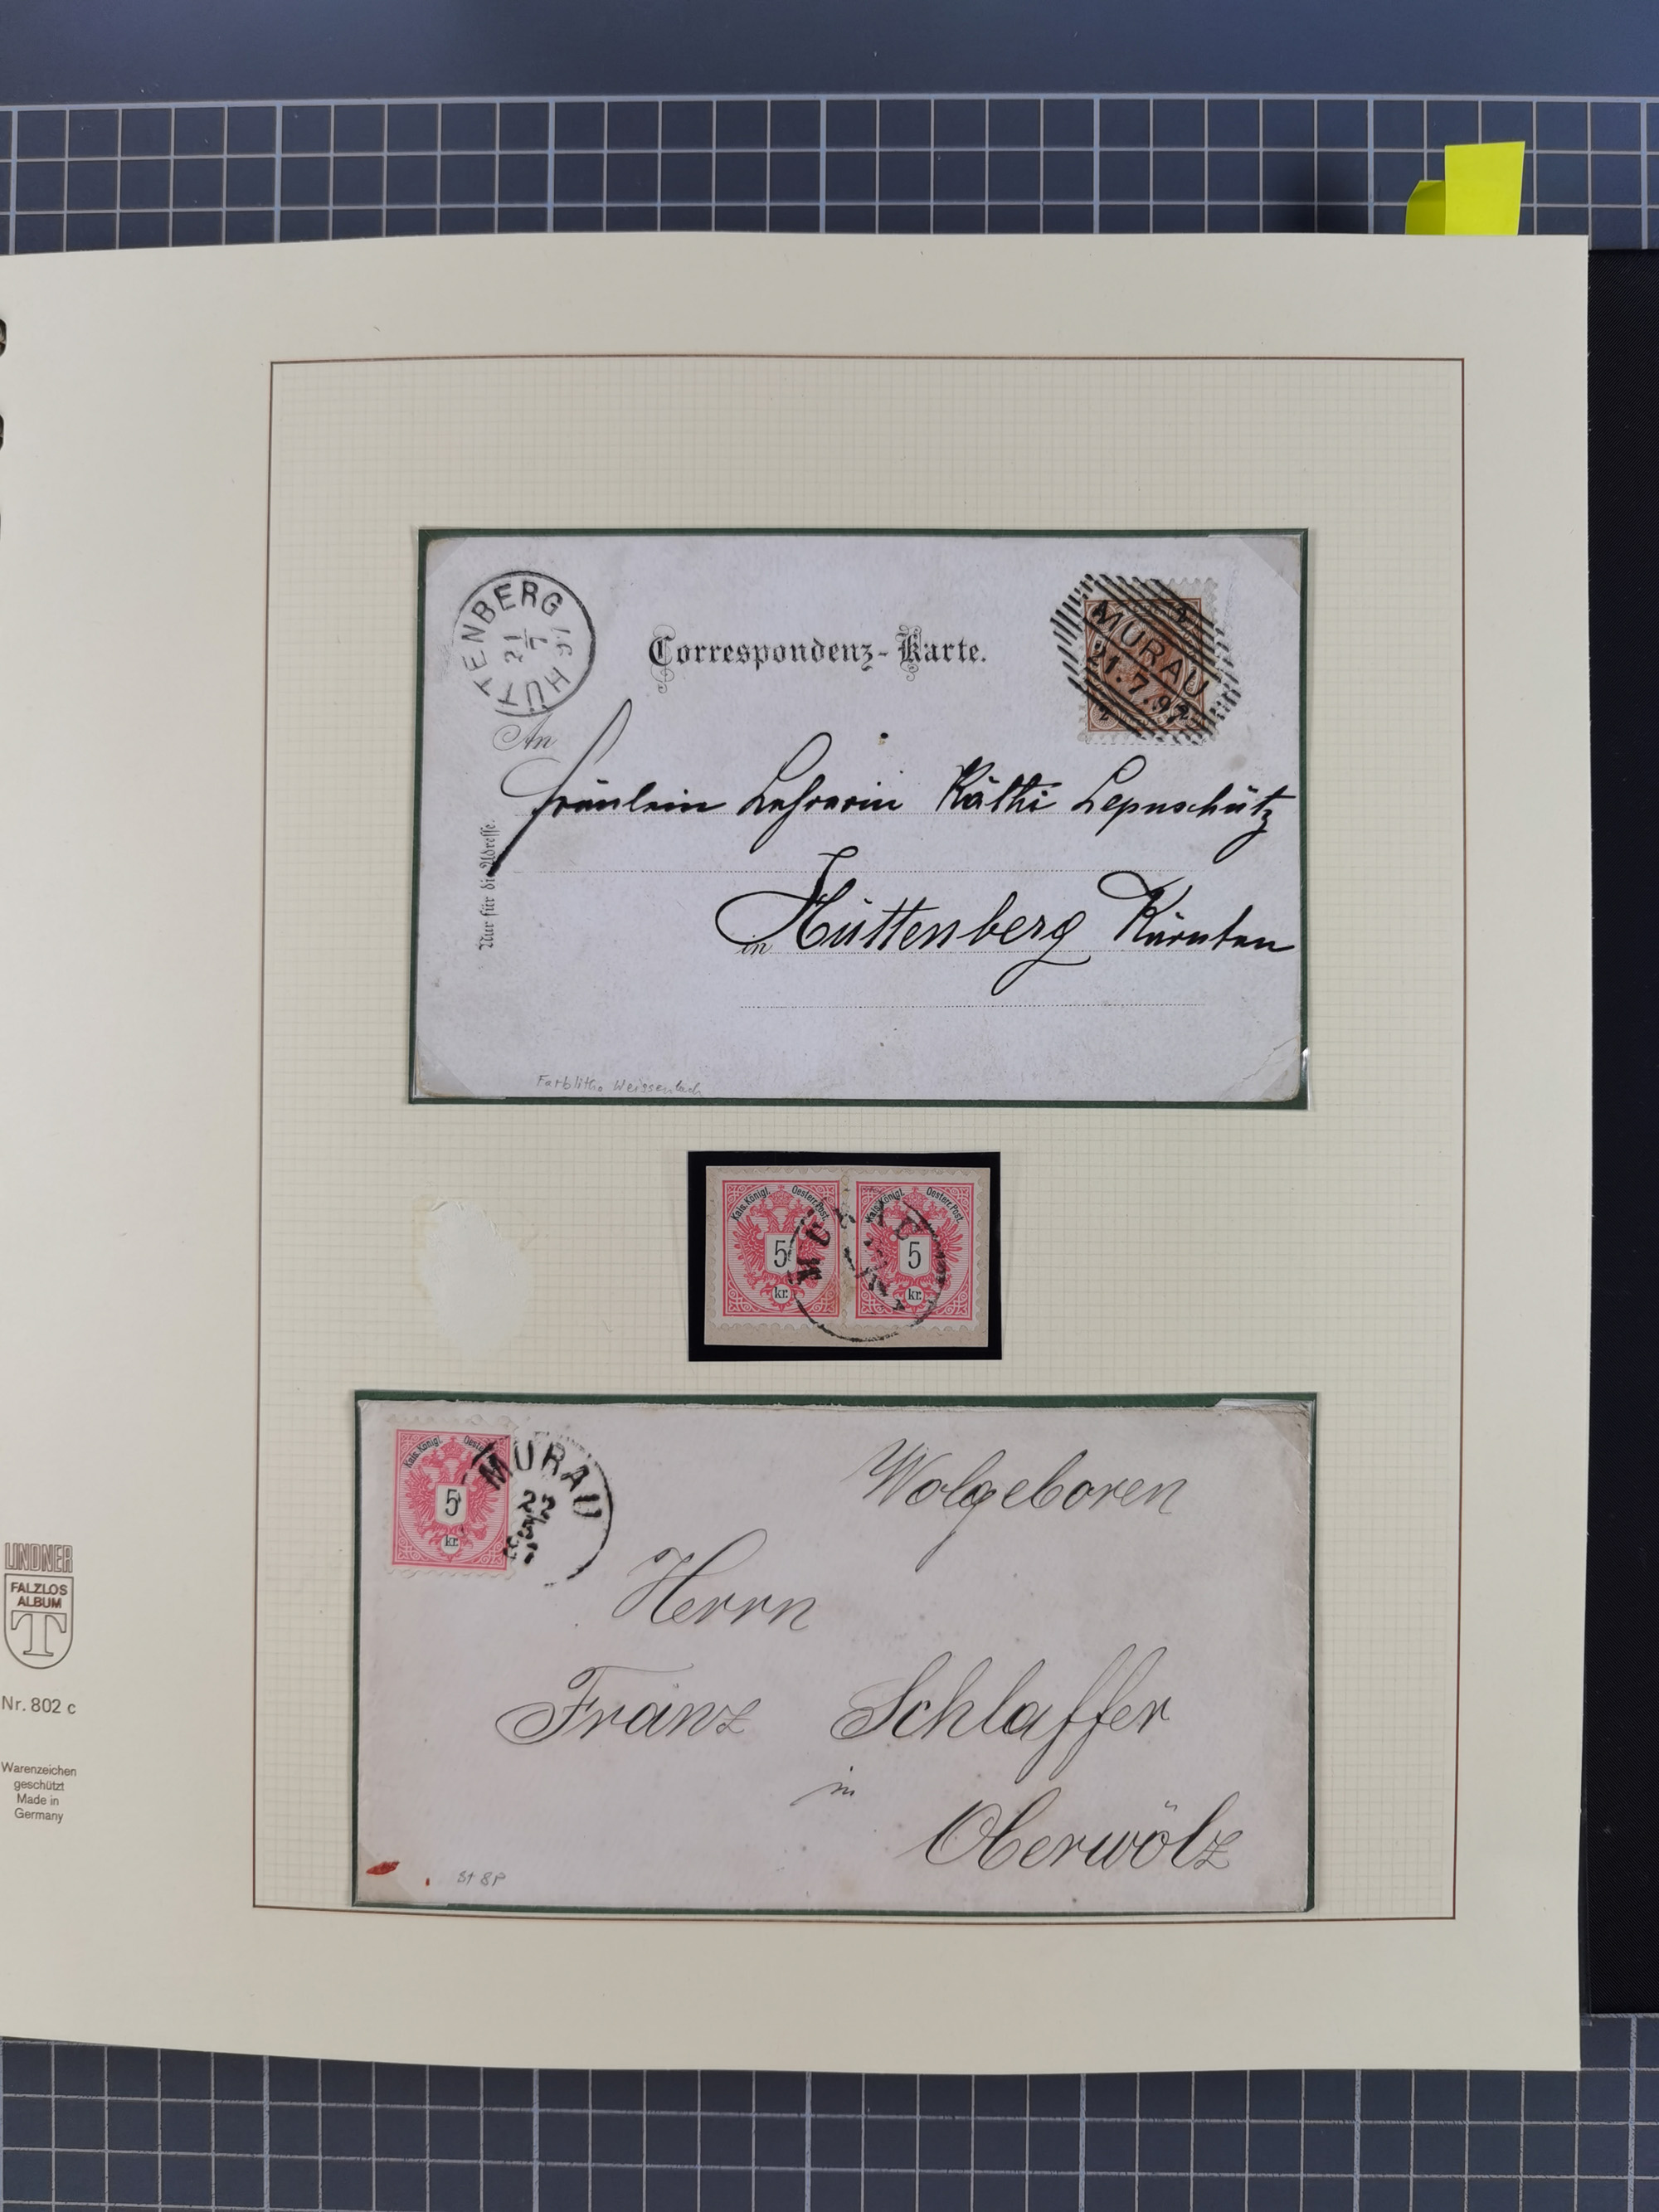 HÜTTENBERG
21
7
Correspondenz-Karte.
2
MURAU
21.7.97
2
2
An
Fräulein Lehrerin Käthi Lepuschütz
Nur für die Adresse.
in Hüttenberg Kärnten
Farblitho Weissenbach
Kais. Königl. Oesterr. Post.
5
kr.
Kais. Königl. Oesterr. Post.
5
kr.
MURAU
Kais. Königl.
5
kr.
MURAU
Wolgeboren
Herrn
Franz Schlaffer
in
Oberwölz
St 8P
LINDNER
FALZLOS
ALBUM
T
Nr. 802 c
Warenzeichen
geschützt
Made in
Germany